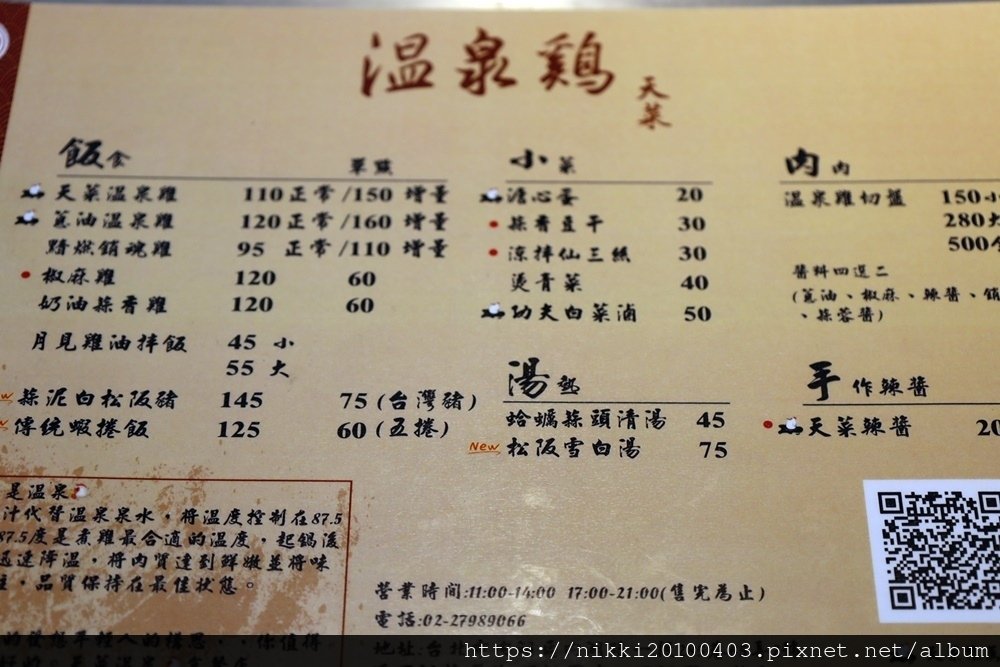 温泉鷄
天菜
飯食 單點
天菜溫泉雞 110正常/150 增量
蔥油溫泉雞 120正常/160 增量
黯燃銷魂雞 95 正常/110 增量
椒麻雞 120 60
奶油蒜香雞 120 60
月見雞油拌飯 45 小
55 大
蒜泥白松阪豬 145 75(台灣豬)
傳統蝦捲飯 125 60(五捲)
小菜
溏心蛋 20
蒜香豆干 30
涼拌仙三絲 30
燙青菜 40
功夫白菜滷 50
湯 熱
蛤蠣蒜頭清湯 45
New 松阪雪白湯 75
肉肉
溫泉雞切盤 150小
280大
500全
醬料四選二
(蔥油、椒麻、辣醬、銷
、蒜蓉醬)
手作辣醬
天菜辣醬 20
是溫泉
汁代替溫泉泉水，將溫度控制在87.5
87.5度是煮雞最合適的溫度，起鍋後
迅速降溫，將肉質達到鮮嫩並將味
，品質保持在最佳狀態。
營業時間:11:00-14:00 17:00-21:00(售完為止)
電話:02-27989066
地址:台北
https://nikki20100403.pixnet.net/album